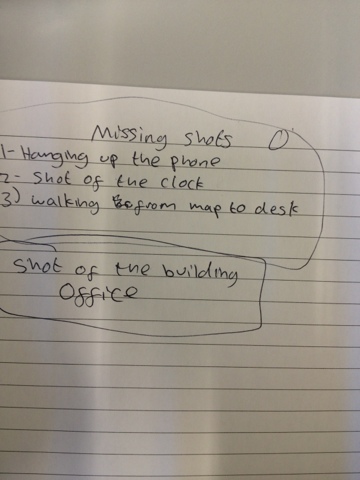 Missing shots
1- Hanging up the phone
2- Shot of the clock
3) walking from map to desk
Shot of the building
Office